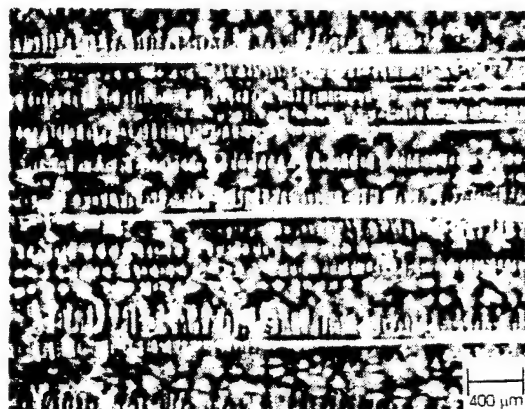 400 μm